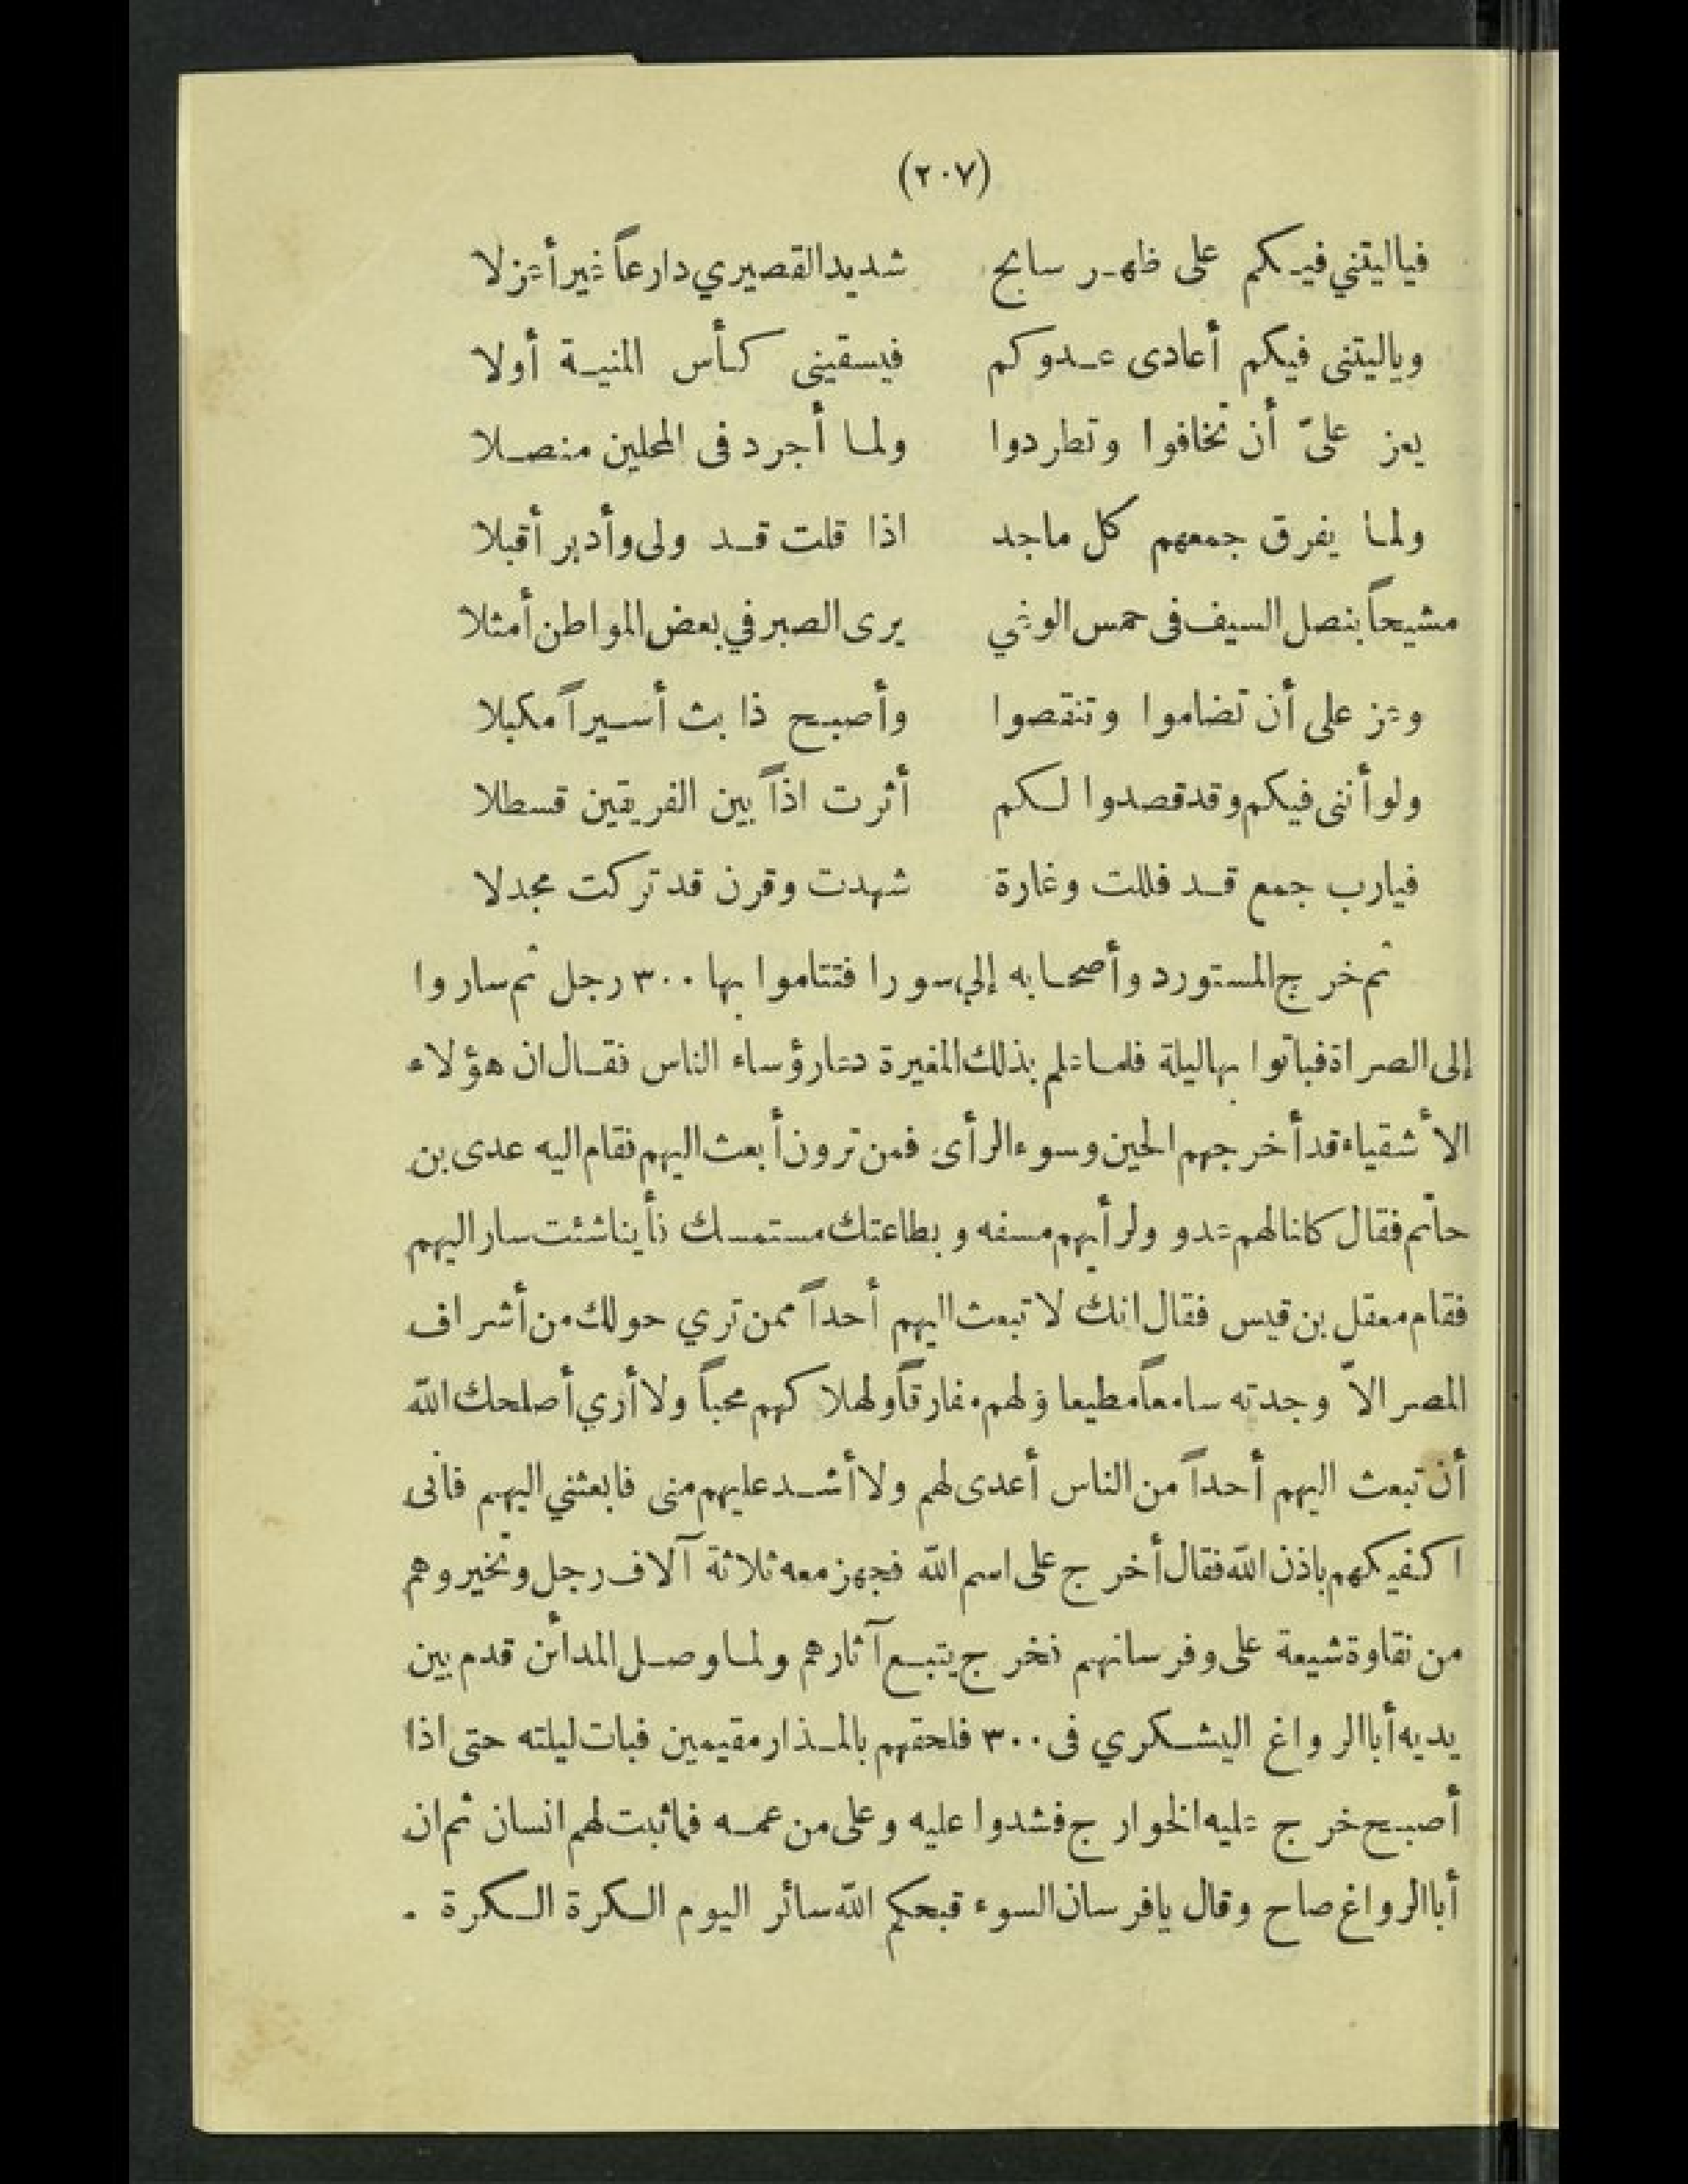 (٢٠٧)
فياليتني فيكم على ظهر سابح شديد القصيري دارعاً غير أعزلا
وياليتنى فيكم أعادى عدوكم فيسقينى كأس المنية أولا
يعز علىّ أن تخافوا وتطردوا ولما أجرد فى المحلين منصلا
ولما يفرق جمعهم كل ماجد اذا قلت قد ولى وأدبر أقبلا
مشيحاً بنصل السيف فى حمس الوغي يرى الصبر في بعض المواطن أمثلا
وعز على أن تضاموا وتنقصوا وأصبح ذا بث أسيراً مكبلا
ولو أننى فيكم وقد قصدوا لكم أثرت اذاً بين الفريقين قسطلا
فيارب جمع قد فللت وغارة شهدت وقرن قد تركت مجدلا
ثم خرج المستورد وأصحابه إلي سورا فتتاموا بها ٣٠٠ رجل ثم ساروا
إلى الصراة فباتوا بها ليلة فلما علم بذلك المغيرة دعا رؤساء الناس فقال ان هؤلاء
الأشقياء قد أخرجهم الحين وسوء الرأى فمن ترون أبعث اليهم فقام اليه عدى بن
حاتم فقال كلنا لهم عدو ولرأيهم مسفه وبطاعتك مستمسك فأينا شئت سار اليهم
فقام معقل بن قيس فقال انك لا تبعث اليهم أحداً ممن تري حولك من أشراف
المصر الاّ وجدته سامعاً مطيعا ولهم مفارقاً ولهلاكهم محباً ولا أري أصلحك الله
أن تبعث اليهم أحداً من الناس أعدى لهم ولا أشد عليهم منى فابعثني اليهم فانى
اكفيكهم باذن الله فقال أخرج على اسم الله فجهز معه ثلاثة آلاف رجل وتخيروهم
من نقاوة شيعة على وفرسانهم فخرج يتبع آثارهم ولما وصل المدائن قدم بين
يديه أبا الرواغ اليشكري فى ٣٠٠ فلحقهم بالمذار مقيمين فبات ليلته حتى اذا
أصبح خرج عليه الخوارج فشدوا عليه وعلى من عمه فما ثبت لهم انسان ثم ان
أبا الرواغ صاح وقال يافرسان السوء قبحكم الله سائر اليوم الكرة الكرة .